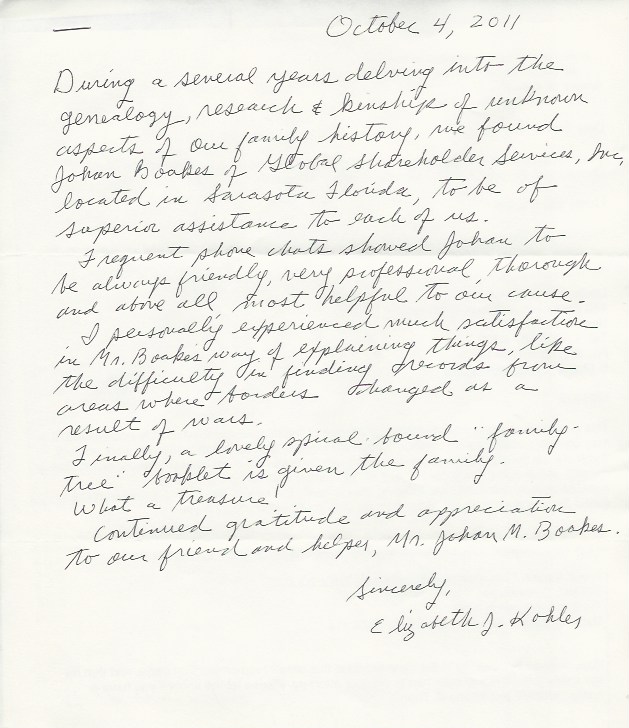 October 4, 2011
During a several years delving into the
genealogy, research & kinship of unknown
aspects of our family history, we found
Johan Boakes of Global Shareholder Services, Inc,
located in Sarasota Florida, to be of
superior assistance to each of us.
Frequent phone chats showed Johan to
be always friendly, very professional, thorough
and above all, most helpful to our cause.
I personally experienced much satisfaction
in Mr. Boakes way of explaining things, like
the difficulty in finding records from
areas where borders changed as a
result of wars.
Finally, a lovely spiral bound "family-
tree" booklet is given the family.
What a treasure!
Continued gratitude and appreciation
to our friend and helper, Mr. Johan M. Boakes.
Sincerely,
Elizabeth J. Kohler